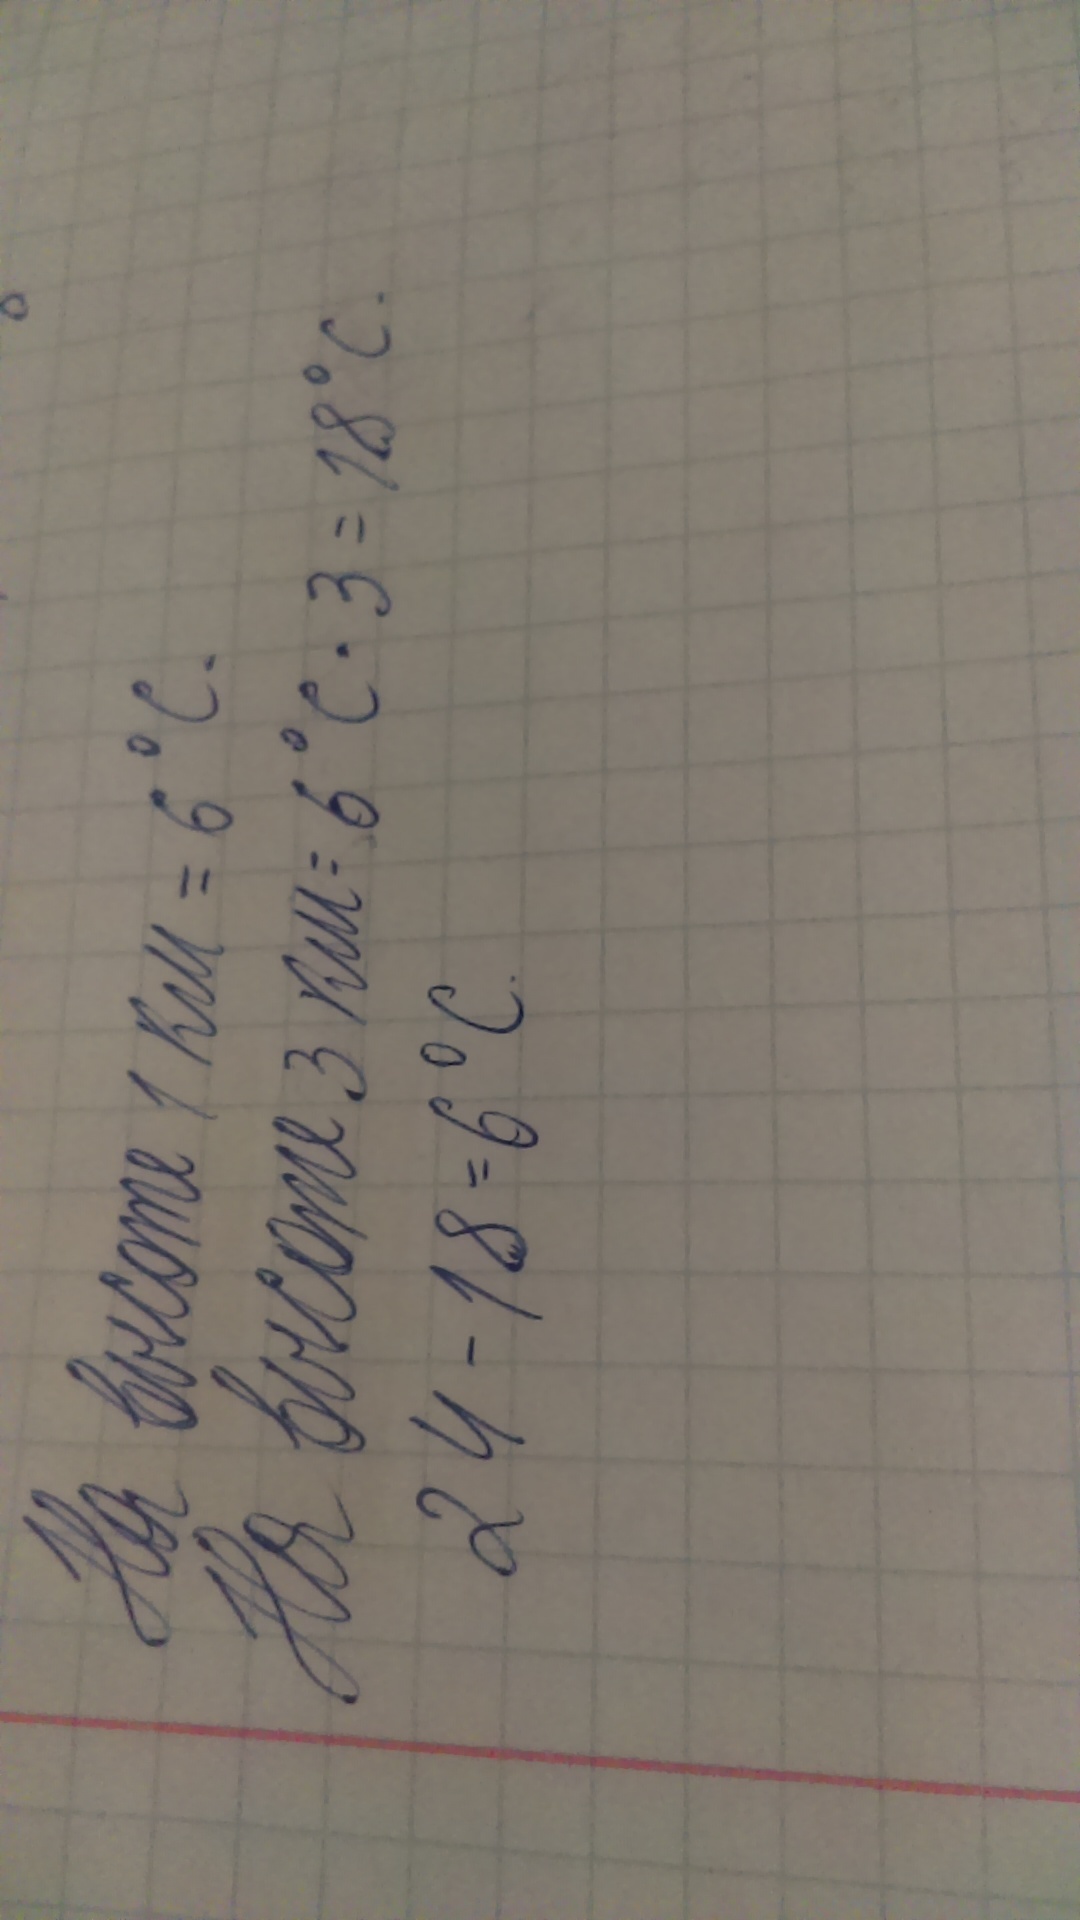 На высоте 1 км = 6 °С.
На высоте 3 км = 6 °С · 3 = 18 °С.
24 - 18 = 6 °С.